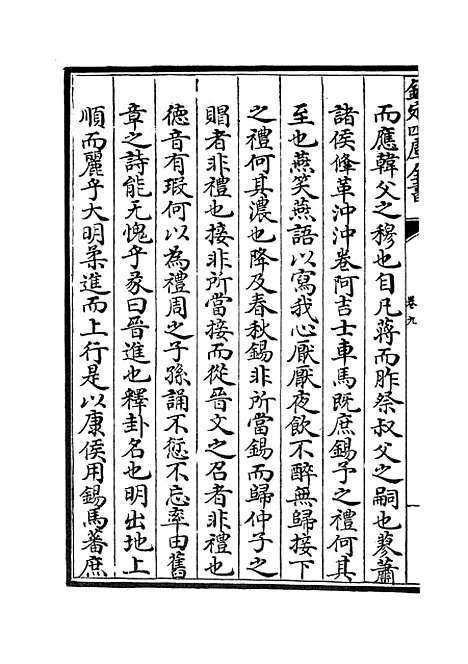 欽定四庫全書
卷九
而應韓父之穆也自凡蔣而胙祭叔父之嗣也蓼蕭
諸侯鞗革沖沖卷阿吉士車馬既庶錫予之禮何其
至也燕笑燕語以寫我心厭厭夜飲不醉無歸接下
之禮何其濃也降及春秋錫非所當錫而歸仲子之
賵者非禮也接非所當接而從晉文之召者非禮也
德音有瑕何以為禮周之子孫誦不愆不忘率由舊
章之詩能无愧乎彖曰晉進也釋卦名也明出地上
順而麗乎大明柔進而上行是以康侯用錫馬蕃庶